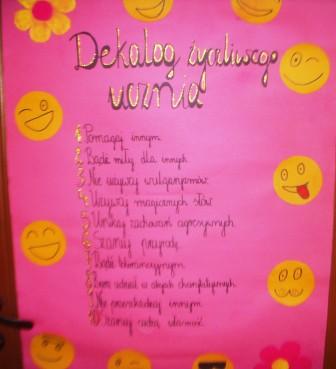 Dekalog życzliwego
ucznia
1 Pomagaj innym
2 Bądź miły dla innych
3 Nie używaj wulgaryzmów
4 Używaj magicznych słów
5 Unikaj zachowań agresywnych
6 Szanuj przyrodę
7 Bądź tolerancyjnym
8 Bierz udział w akcjach charytatywnych
9 Nie przeszkadzaj innym
10 Szanuj cudzą własność